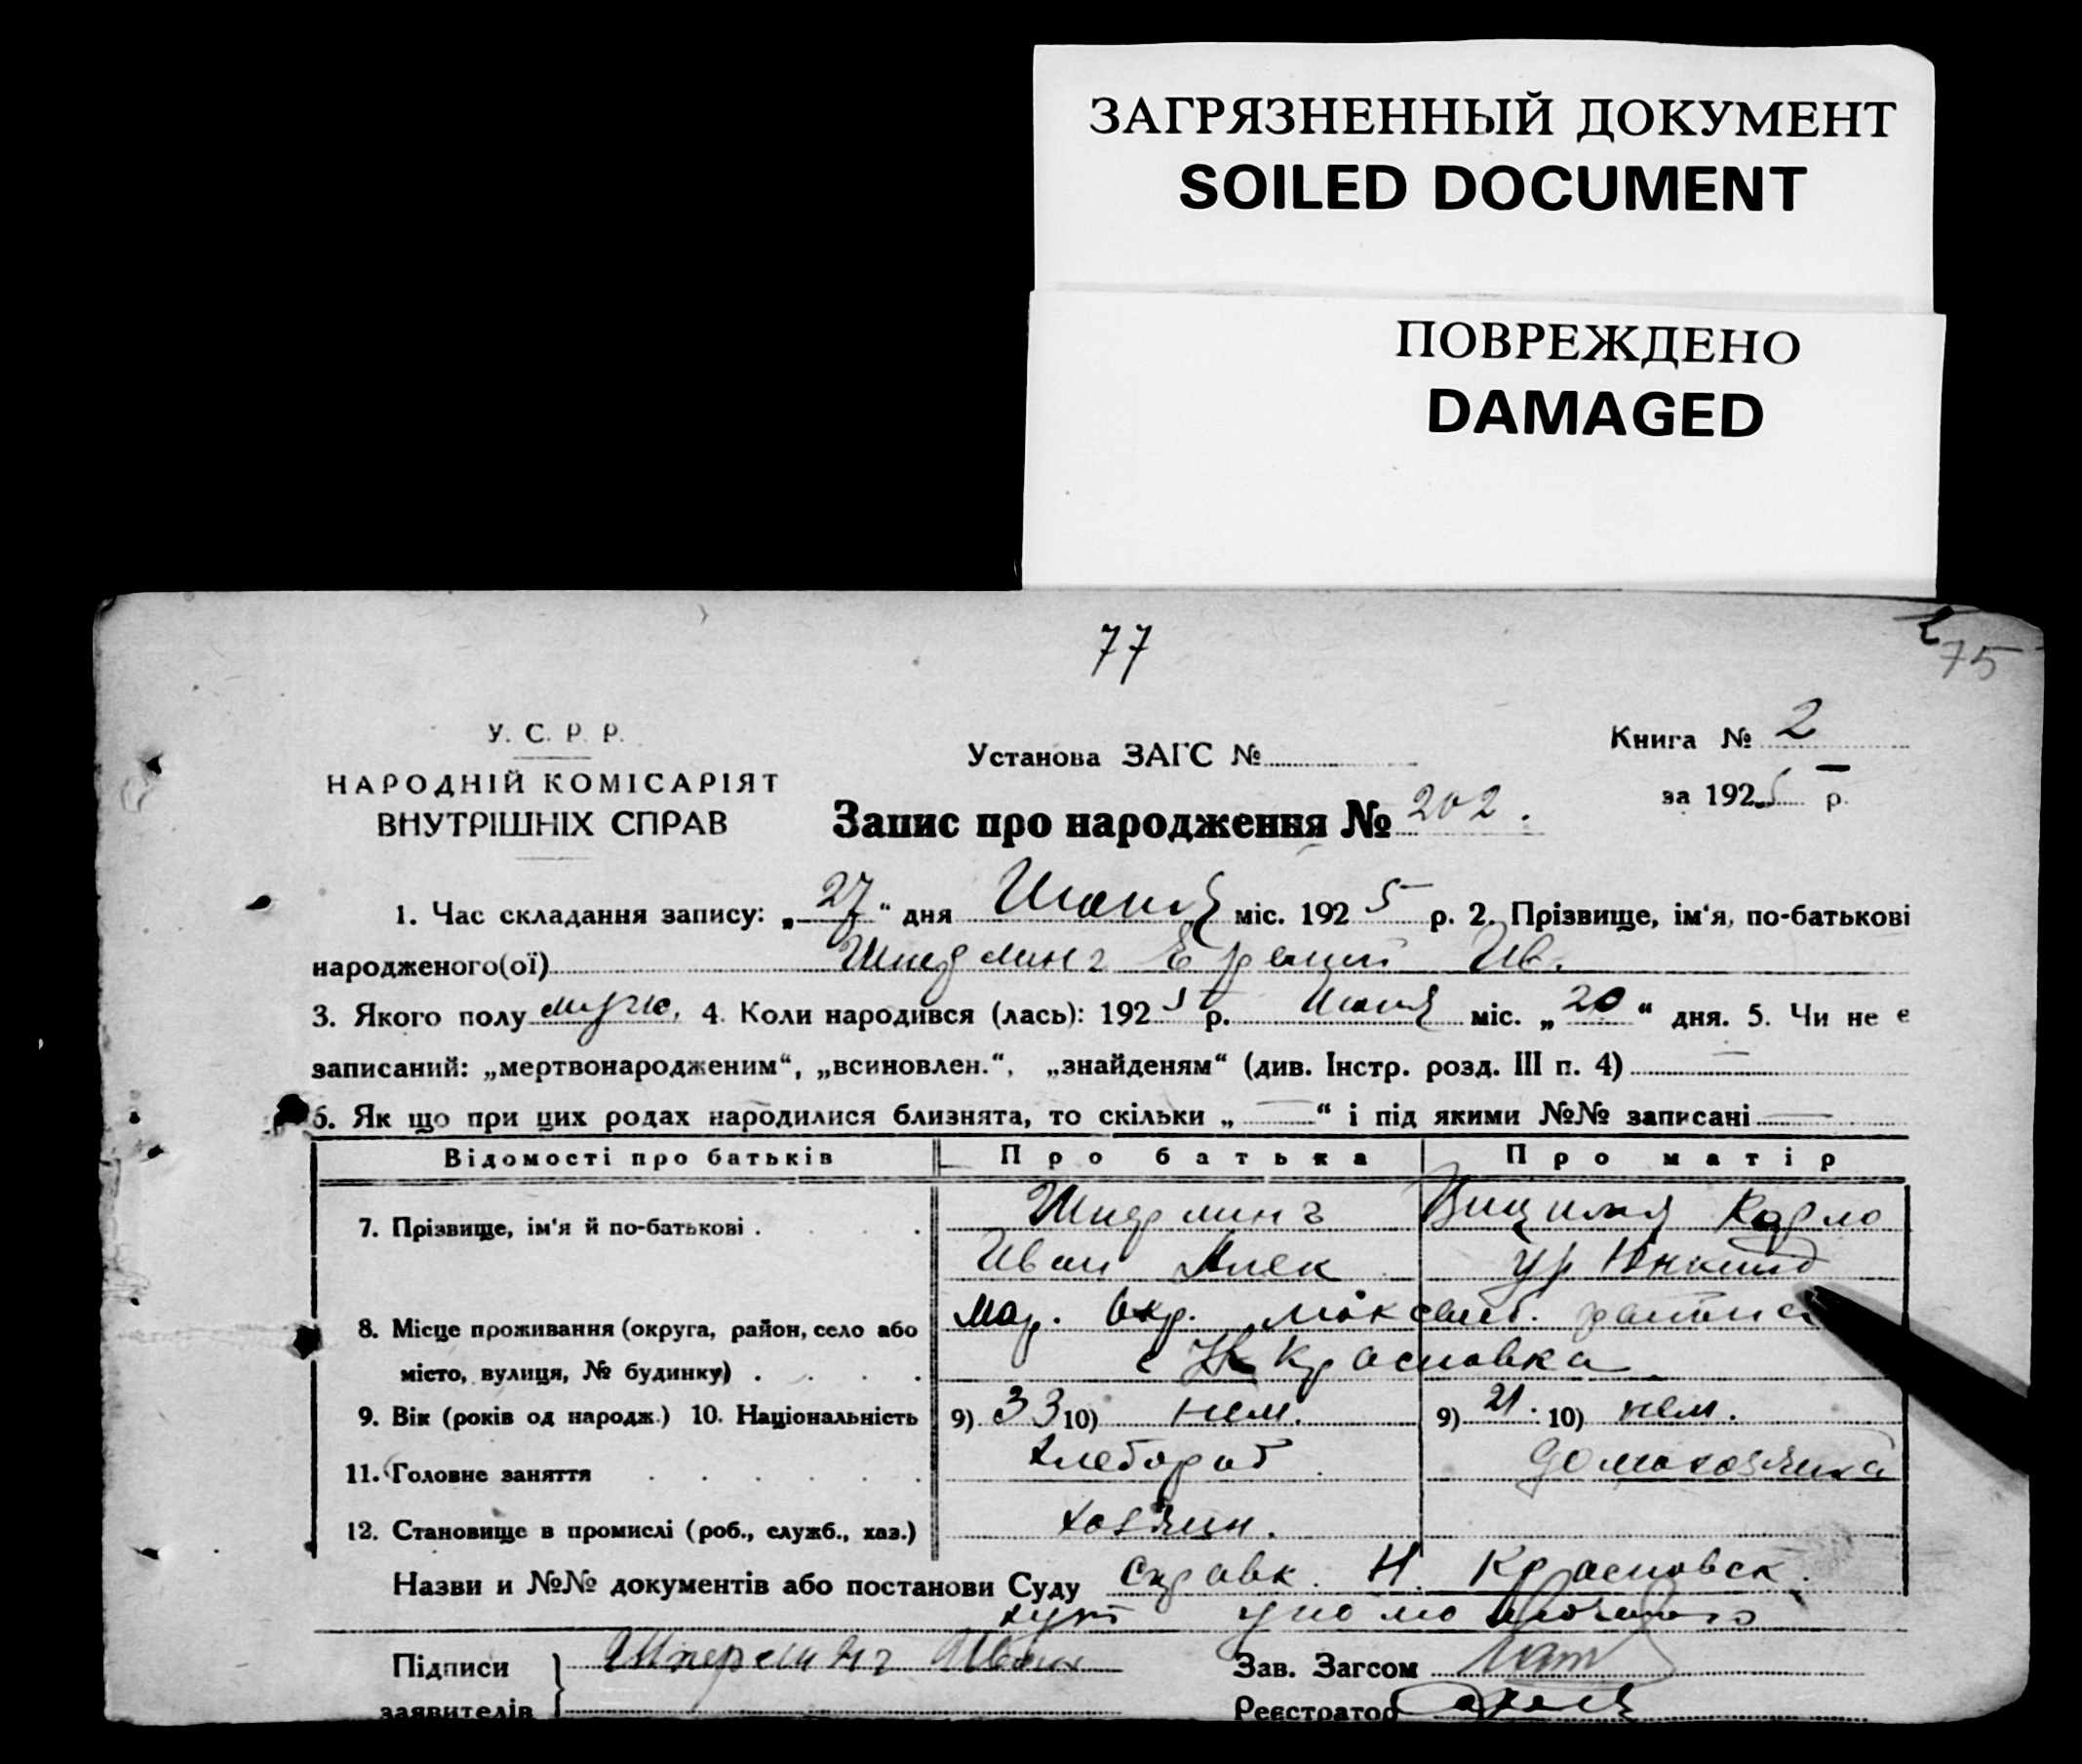 ЗАГРЯЗНЕННЫЙ ДОКУМЕНТ
SOILED DOCUMENT
ПОВРЕЖДЕНО
DAMAGED
77
75
У. С. Р. Р.
НАРОДНІЙ КОМІСАРІЯТ
ВНУТРІШНІХ СПРАВ
Установа ЗАГС №
Книга № 2
за 1925 р.
Запис про народження № 202.
1. Час складання запису: „27“ дня Июня міс. 1925 р. 2. Прізвище, ім‘я, по-батькові
народженого(ої) Ив.
3. Якого полу муж. 4. Коли народився (лась): 1925 р. Июня міс. „20“ дня. 5. Чи не є
записаний: „мертвонародженим“, „всиновлен.“, „знайденям“ (див. Інстр. розд. III п. 4) —
6. Як що при цих родах народилися близнята, то скільки „—“ і під якими №№ записані —
Відомості про батьків Про батька Про матір
7. Прізвище, ім‘я й по-батькові . . . . Карло
Иван Алек ур
8. Місце проживання (округа, район, село або Мар. Окр. района
місто, вулиця, № будинку) . . . . с Н Красновка
9. Вік (років од народж.) 10. Національність 9) 33 10) нем. 9) 21. 10) нем.
11. Головне заняття . . . . . . хлебороб домохозяйка
12. Становище в промислі (роб., служб., хаз.) хозяин.
Назви и №№ документів або постанови Суду Справк. Н. Красновск.
хут уполномоченного
Підписи Иван Зав. Загсом
заявителів Реєстратор